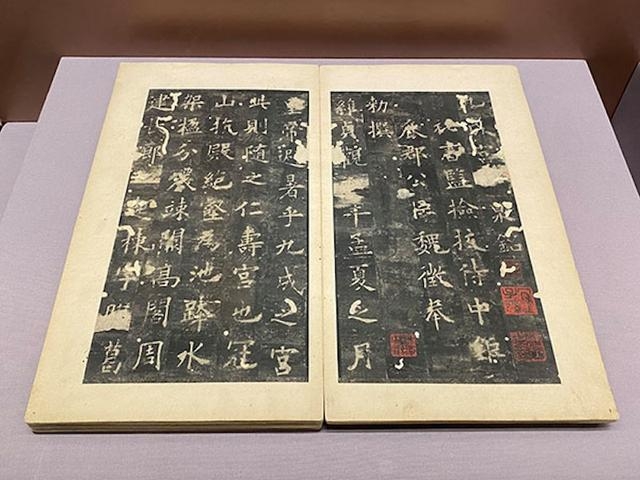 九成宮泉銘
秘書監檢挍侍中鉅
鹿郡公臣魏徵奉
勑撰
維貞觀年孟夏之月
皇帝避暑乎九成之宮
此則隨之仁壽宮也冠
山抗殿絕壑為池跨水
架楹分巖竦闕高閣周
建長廊棟宇膠葛